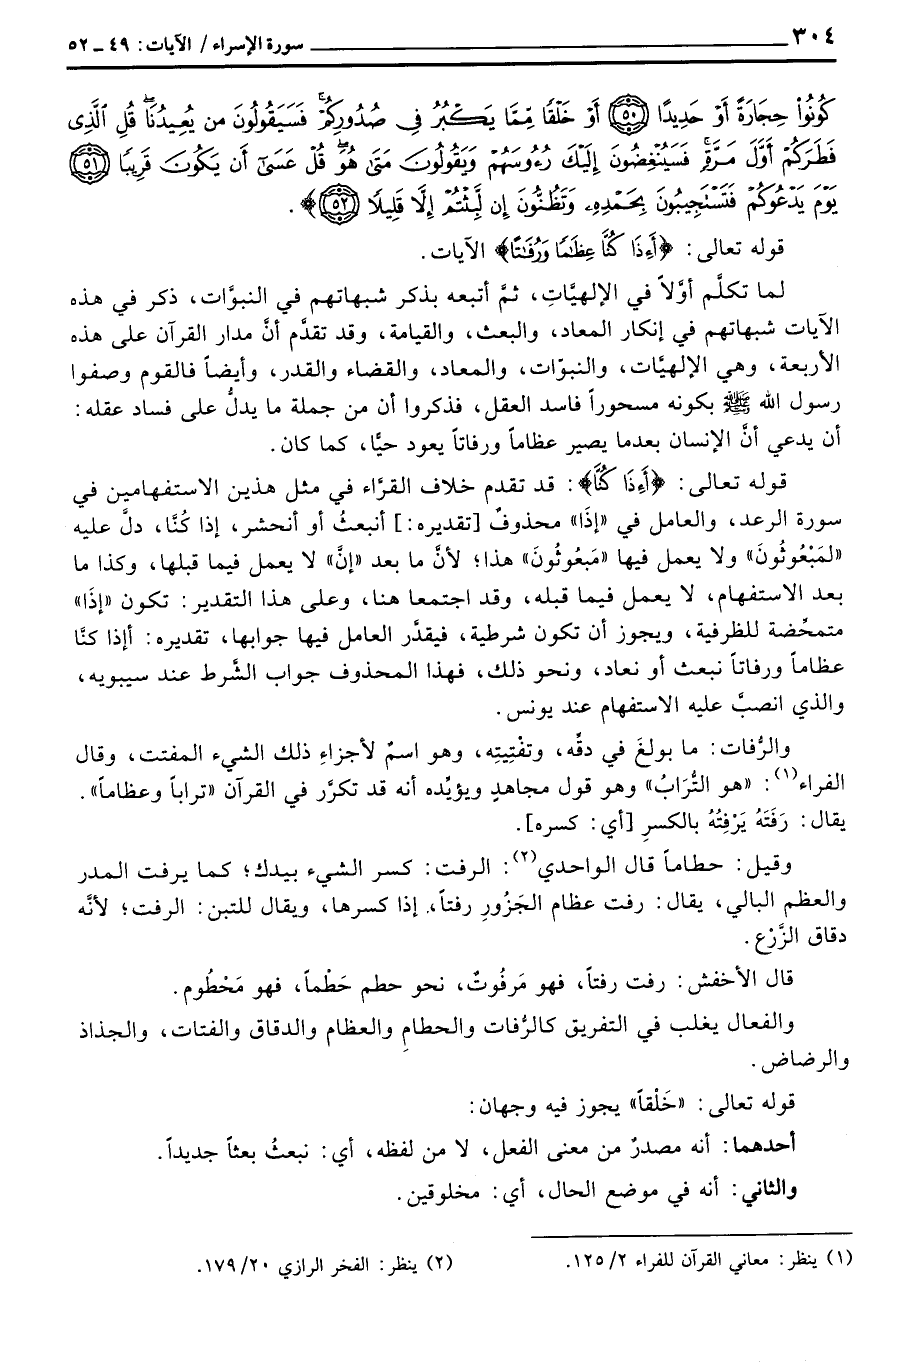 ٣٠٤ ـــــــــــــــــــــــــــــــــــــــ سورة الإسراء / الآيات: ٤٩ ـ ٥٢
كُونُواْ حِجَارَةً أَوْ حَدِيدًا ﴿٥٠﴾ أَوْ خَلْقًا مِّمَّا يَكْبُرُ فِي صُدُورِكُمْ ۚ فَسَيَقُولُونَ مَن يُعِيدُنَا ۖ قُلِ الَّذِي
فَطَرَكُمْ أَوَّلَ مَرَّةٍ ۚ فَسَيُنْغِضُونَ إِلَيْكَ رُءُوسَهُمْ وَيَقُولُونَ مَتَى هُوَ ۖ قُلْ عَسَىٰٓ أَن يَكُونَ قَرِيبًا ﴿٥١﴾
يَوْمَ يَدْعُوكُمْ فَتَسْتَجِيبُونَ بِحَمْدِهِۦ وَتَظُنُّونَ إِن لَّبِثْتُمْ إِلَّا قَلِيلًا ﴿٥٢﴾﴾.
قوله تعالى: ﴿أَءِذَا كُنَّا عِظَٰمًا وَرُفَٰتًا﴾ الآيات.
لما تكلَّم أوَّلاً في الإلهيَّاتِ، ثمَّ أتبعه بذكر شبهاتهم في النبوَّات، ذكر في هذه
الآيات شبهاتهم في إنكار المعاد، والبعث، والقيامة، وقد تقدَّم أنَّ مدار القرآن على هذه
الأربعة، وهي الإلهيَّات، والنبوّات، والمعاد، والقضاء والقدر، وأيضاً فالقوم وصفوا
رسول الله ﷺ بكونه مسحوراً فاسد العقل، فذكروا أن من جملة ما يدلُّ على فساد عقله:
أن يدعي أنَّ الإنسان بعدما يصير عظاماً ورفاتاً يعود حيًّا، كما كان.
قوله تعالى: ﴿أَءِذَا كُنَّا﴾: قد تقدم خلاف القرَّاء في مثل هذين الاستفهامين في
سورة الرعد، والعامل في «إذَا» محذوفٌ [تقديره:] أنبعثُ أو أنحشر، إذا كُنَّا، دلَّ عليه
«لمَبْعُوثُونَ» ولا يعمل فيها «مَبعُوثُونَ» هذا؛ لأنَّ ما بعد «إنَّ» لا يعمل فيما قبلها، وكذا ما
بعد الاستفهام، لا يعمل فيما قبله، وقد اجتمعا هنا، وعلى هذا التقدير: تكون «إذَا»
متمحِّضة للظرفية، ويجوز أن تكون شرطية، فيقدَّر العامل فيها جوابها، تقديره: أإذا كنَّا
عظاماً ورفاتاً نبعث أو نعاد، ونحو ذلك، فهذا المحذوف جواب الشَّرط عند سيبويه،
والذي انصبَّ عليه الاستفهام عند يونس.
والرُّفات: ما بولغَ في دقِّه، وتفْتِيتِه، وهو اسمٌ لأجزاءِ ذلك الشيء المفتت، وقال
الفراء(١): «هو التُّرَابُ» وهو قول مجاهدٍ ويؤيِّده أنه قد تكرَّر في القرآن «تراباً وعظاماً».
يقال: رَفَتَهُ يَرْفِتُهُ بالكسرِ [أي: كسره].
وقيل: حطاماً قال الواحدي(٢): الرفت: كسر الشيء بيدك؛ كما يرفت المدر
والعظم البالي، يقال: رفت عظام الجَزُورِ رفتاً، إذا كسرها، ويقال للتبن: الرفت؛ لأنَّه
دقاق الزَّرْع.
قال الأخفش: رفت رفتاً، فهو مَرفُوتٌ، نحو حطم حَطْماً، فهو مَحْطُوم.
والفعال يغلب في التفريق كالرُّفات والحطامِ والعظام والدقاق والفتات، والجذاذ
والرضاض.
قوله تعالى: «خَلْقاً» يجوز فيه وجهان:
أحدهما: أنه مصدرٌ من معنى الفعل، لا من لفظه، أي: نبعثُ بعثاً جديداً.
والثاني: أنه في موضع الحال، أي: مخلوقين.
(١) ينظر: معاني القرآن للفراء ٢/١٢٥. (٢) ينظر: الفخر الرازي ٢٠/١٧٩.